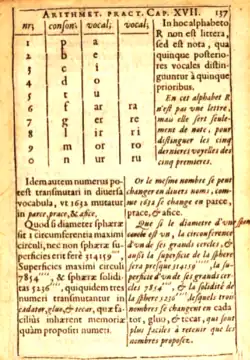 ARITHMET. PRACT. CAP. XVII. 137
nr; conson; vocal; vocal;
1 p a
2 b e
3 c i
4 d o
5 t u
6 f ar ra
7 g er re
8 l ir ri
9 m or ro
0 n ur ru
In hoc alphabeto
R non est littera,
sed est nota, qua
quinque posterio-
res vocales distin-
guuntur à quinque
prioribus.
En cet alphabet R
n'est pas une lettre,
mais elle sert seule-
ment de note, pour
distinguer les cinq
dernieres voyelles des
cinq premieres.
Idem autem numerus po-
test transmutari in diversa
vocabula, vt 1632 mutatur
in parce, prace, & afice.
Quod si diameter sphæræ
sit 1 circumferentia maximi
circuli, nec non sphæræ su-
perficies erit ferè 314159
Superficies maximi circuli
7854 & sphæræ solidi-
tas 5236 quiquidem tres
numeri transmutantur in
cadator, glus, & tecar, quæ fa-
cilius inhærent memoriæ
quàm propositi numeri.
Or le mesme nombre se peut
changer en divers noms, com-
me 1632 se change en parce,
prace, & afice.
Que si le diametre d'une
est 1, la circonference
d'un de ses grands cercles, &
aussi la superficie de la sphere
sera presque 314159 la su-
perficie d'un de ses grands cer-
cles 7854 & la solidité de
la sphere 5236 lesquels trois
nombres se changent en cada-
tor, glus, & tecar, qui sont
plus faciles à retenir que les
nombres proposez.